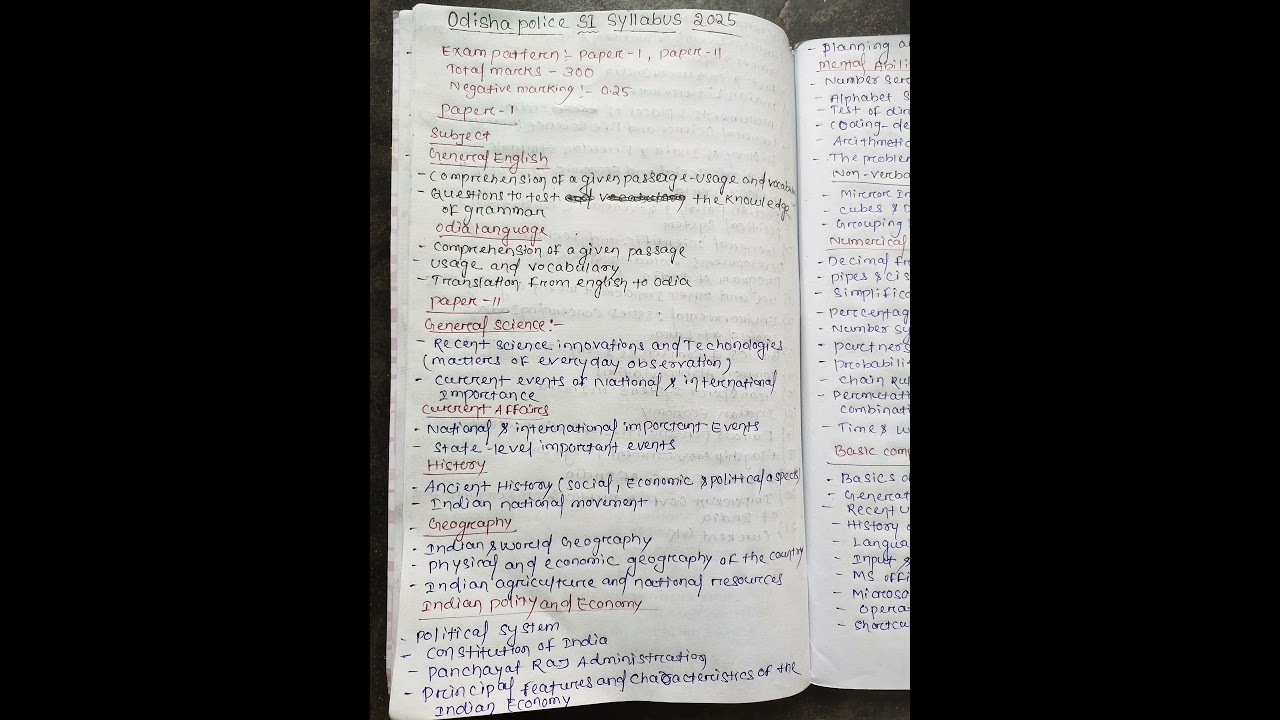 Odisha police SI Syllabus 2025
Exam patteren :- Paper-I, Paper-II
Total marks - 300
Negative marking :- 0.25
Paper-I
Subject
General English
- Comprehension of a given passage-usage and vocabu
- Questions to test the knowledge
of grammar
Odia language
- Comprehension of a given passage
- usage and vocabulary
- Translation from english to odia
Paper-II
General Science:-
- Recent science innovations and Techonologies
(matters of everyday observation)
- current events of National & international
importance
Current Affairs
- National & international important Events
- State-level important events
History
- Ancient History (social, Economic & political aspects)
- Indian national movement
- Geography
- Indian & world Geography
- physical and economic geography of the country
- Indian agriculture and national resources
Indian polity and Economy
- political system
- constitution of India
- panchayat Raj Administration
- Principal features and characteristics of the
Indian Economy
- Planning a
Mental Abili
- Number Ser
- Alphabet S
- Test of dir
- Coding-de
- Arithmetic
- The problem
Non-verba
- Mirror Im
- cubes &
- Grouping
Numerical
- Decimal fr
- pipes & cis
- Simplifica
- percentag
- Number Sy
- partners
- probabilit
- chain ru
- Permutati
combinati
- Time & w
Basic com
- Basics o
- Generat
- Recent u
- History
- Langua
- Input &
- MS offi
- Microso
- Opera
- Shortcu